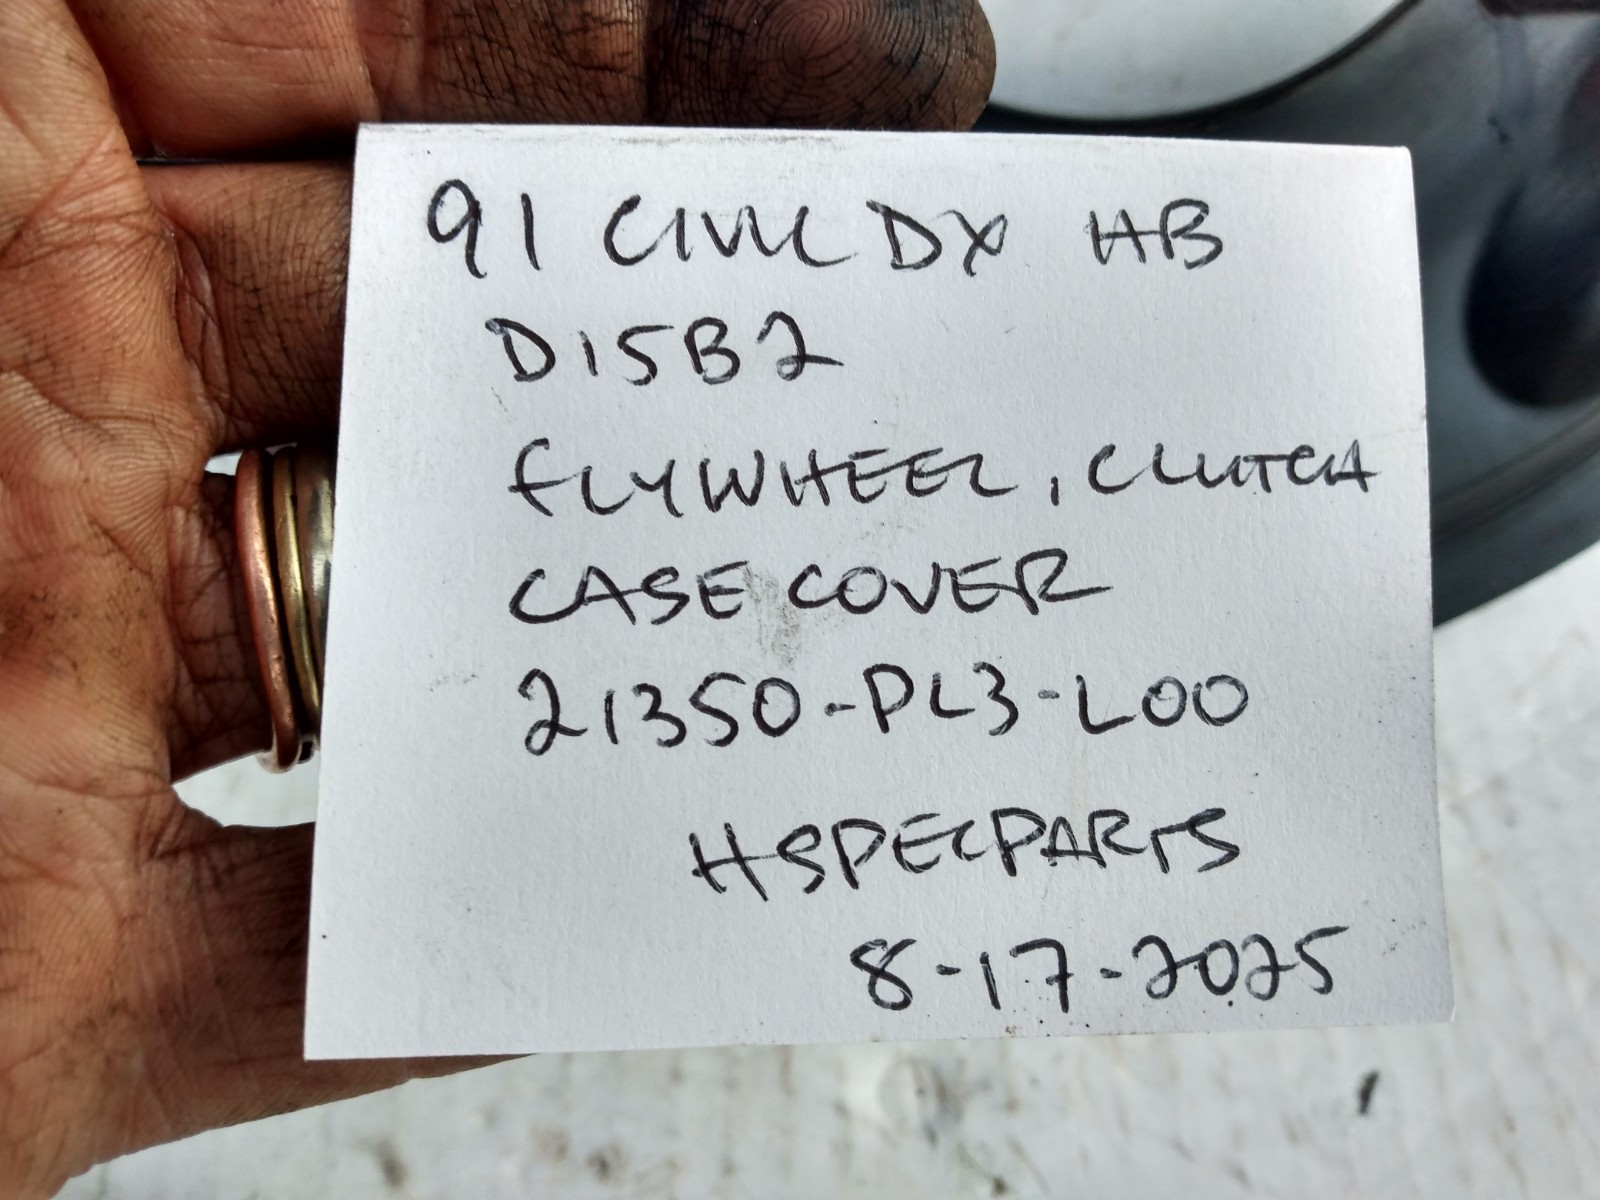 91 CIVIC DX HB
D15B2
FLYWHEEL, CLUTCH
CASE COVER
21350-PL3-L00
HSPECPARTS
8-17-2025